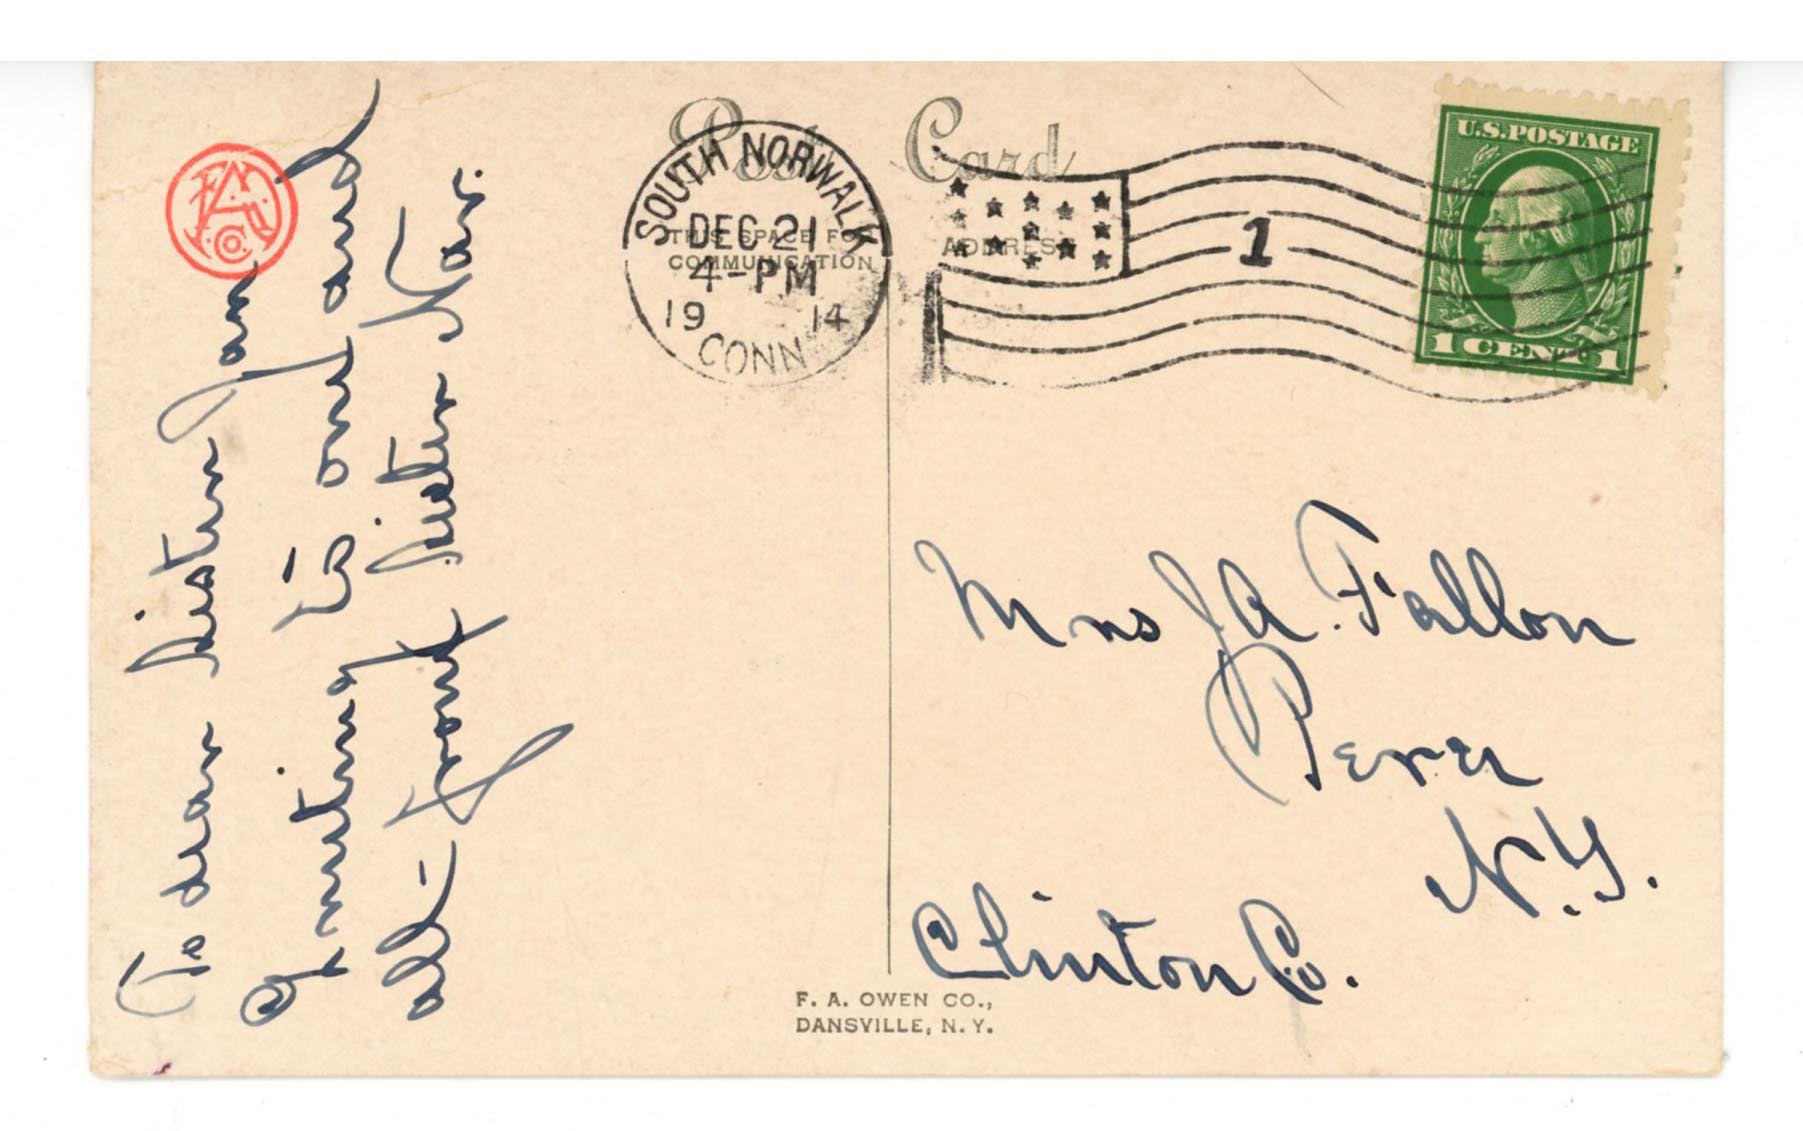 Post Card
THIS SPACE FOR
COMMUNICATION
ADDRESS
SOUTH NORWALK
DEC 21
4-PM
19 14
CONN
1
U.S.POSTAGE
1 CENT 1
To dear Sister Jan
Greeting to one and
all - from Sister Nar.
Mrs J A. Fallon
Peru
N.Y.
Clinton Co.
F. A. OWEN CO.,
DANSVILLE, N.Y.